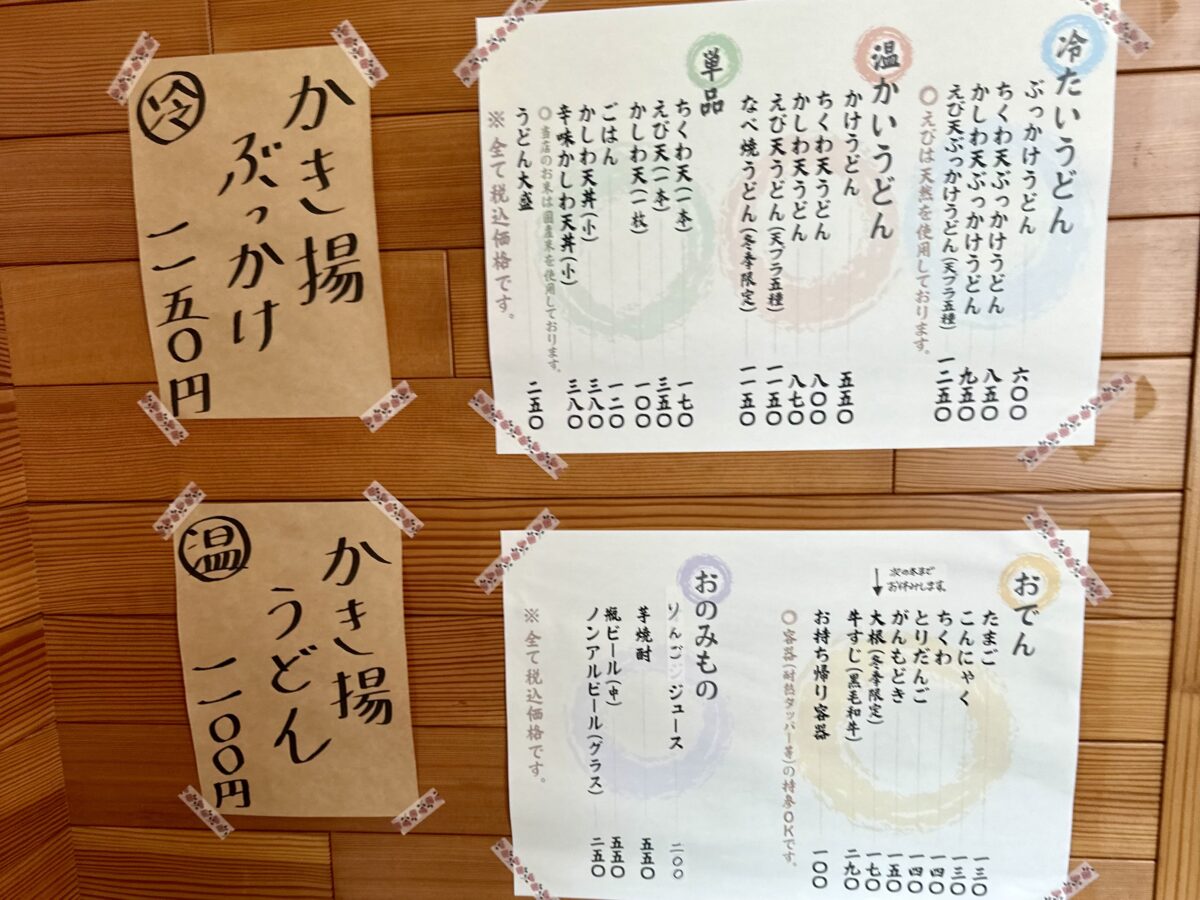 冷たいうどん
ぶっかけうどん 六〇〇
ちくわ天ぶっかけうどん 八五〇
かしわ天ぶっかけうどん 九五〇
えび天ぶっかけうどん(天プラ五種) 一二五〇
◎えびは天然を使用しております。
温かいうどん
かけうどん 五五〇
ちくわ天うどん 八〇〇
かしわ天うどん 八七〇
えび天うどん(天プラ五種) 一一五〇
なべ焼うどん(冬季限定) 一一五〇
単品
ちくわ天(一本) 一七〇
えび天(一本) 三五〇
かしわ天(一枚) 一〇〇
ごはん 一二〇
かしわ天丼(小) 三八〇
辛味かしわ天丼(小) 三八〇
◎当店のお米は国産米を使用しております。
うどん大盛 二五〇
※全て税込価格です。
かき揚
ぶっかけ
冷 一一五〇円
おでん
たまご 一三〇
こんにゃく 一三〇
ちくわ 一四〇
とりだんご 一四〇
がんもどき 一五〇
次の冬まで
お休みします。
大根(冬季限定) 一七〇
牛すじ(黒毛和牛) 二九〇
お持ち帰り容器 一〇〇
◎容器(耐熱タッパー等)の持参OKです。
おのみもの
りんごジュース 二〇〇
芋焼酎 五五〇
瓶ビール(中) 五五〇
ノンアルビール(グラス) 二五〇
※全て税込価格です。
かき揚
うどん
温 一一〇〇円